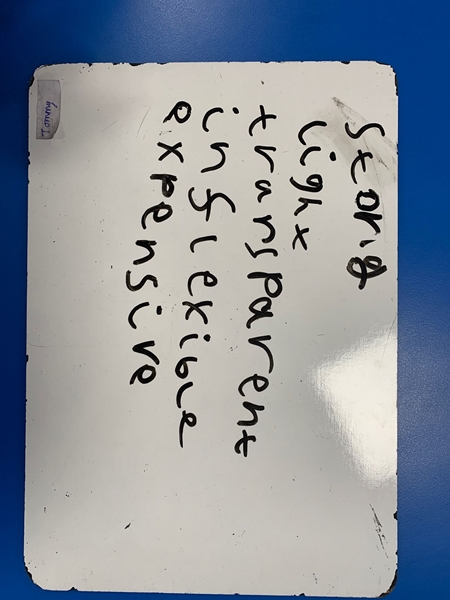 Storig
light
transparent
inflexible
expensive
Tommy